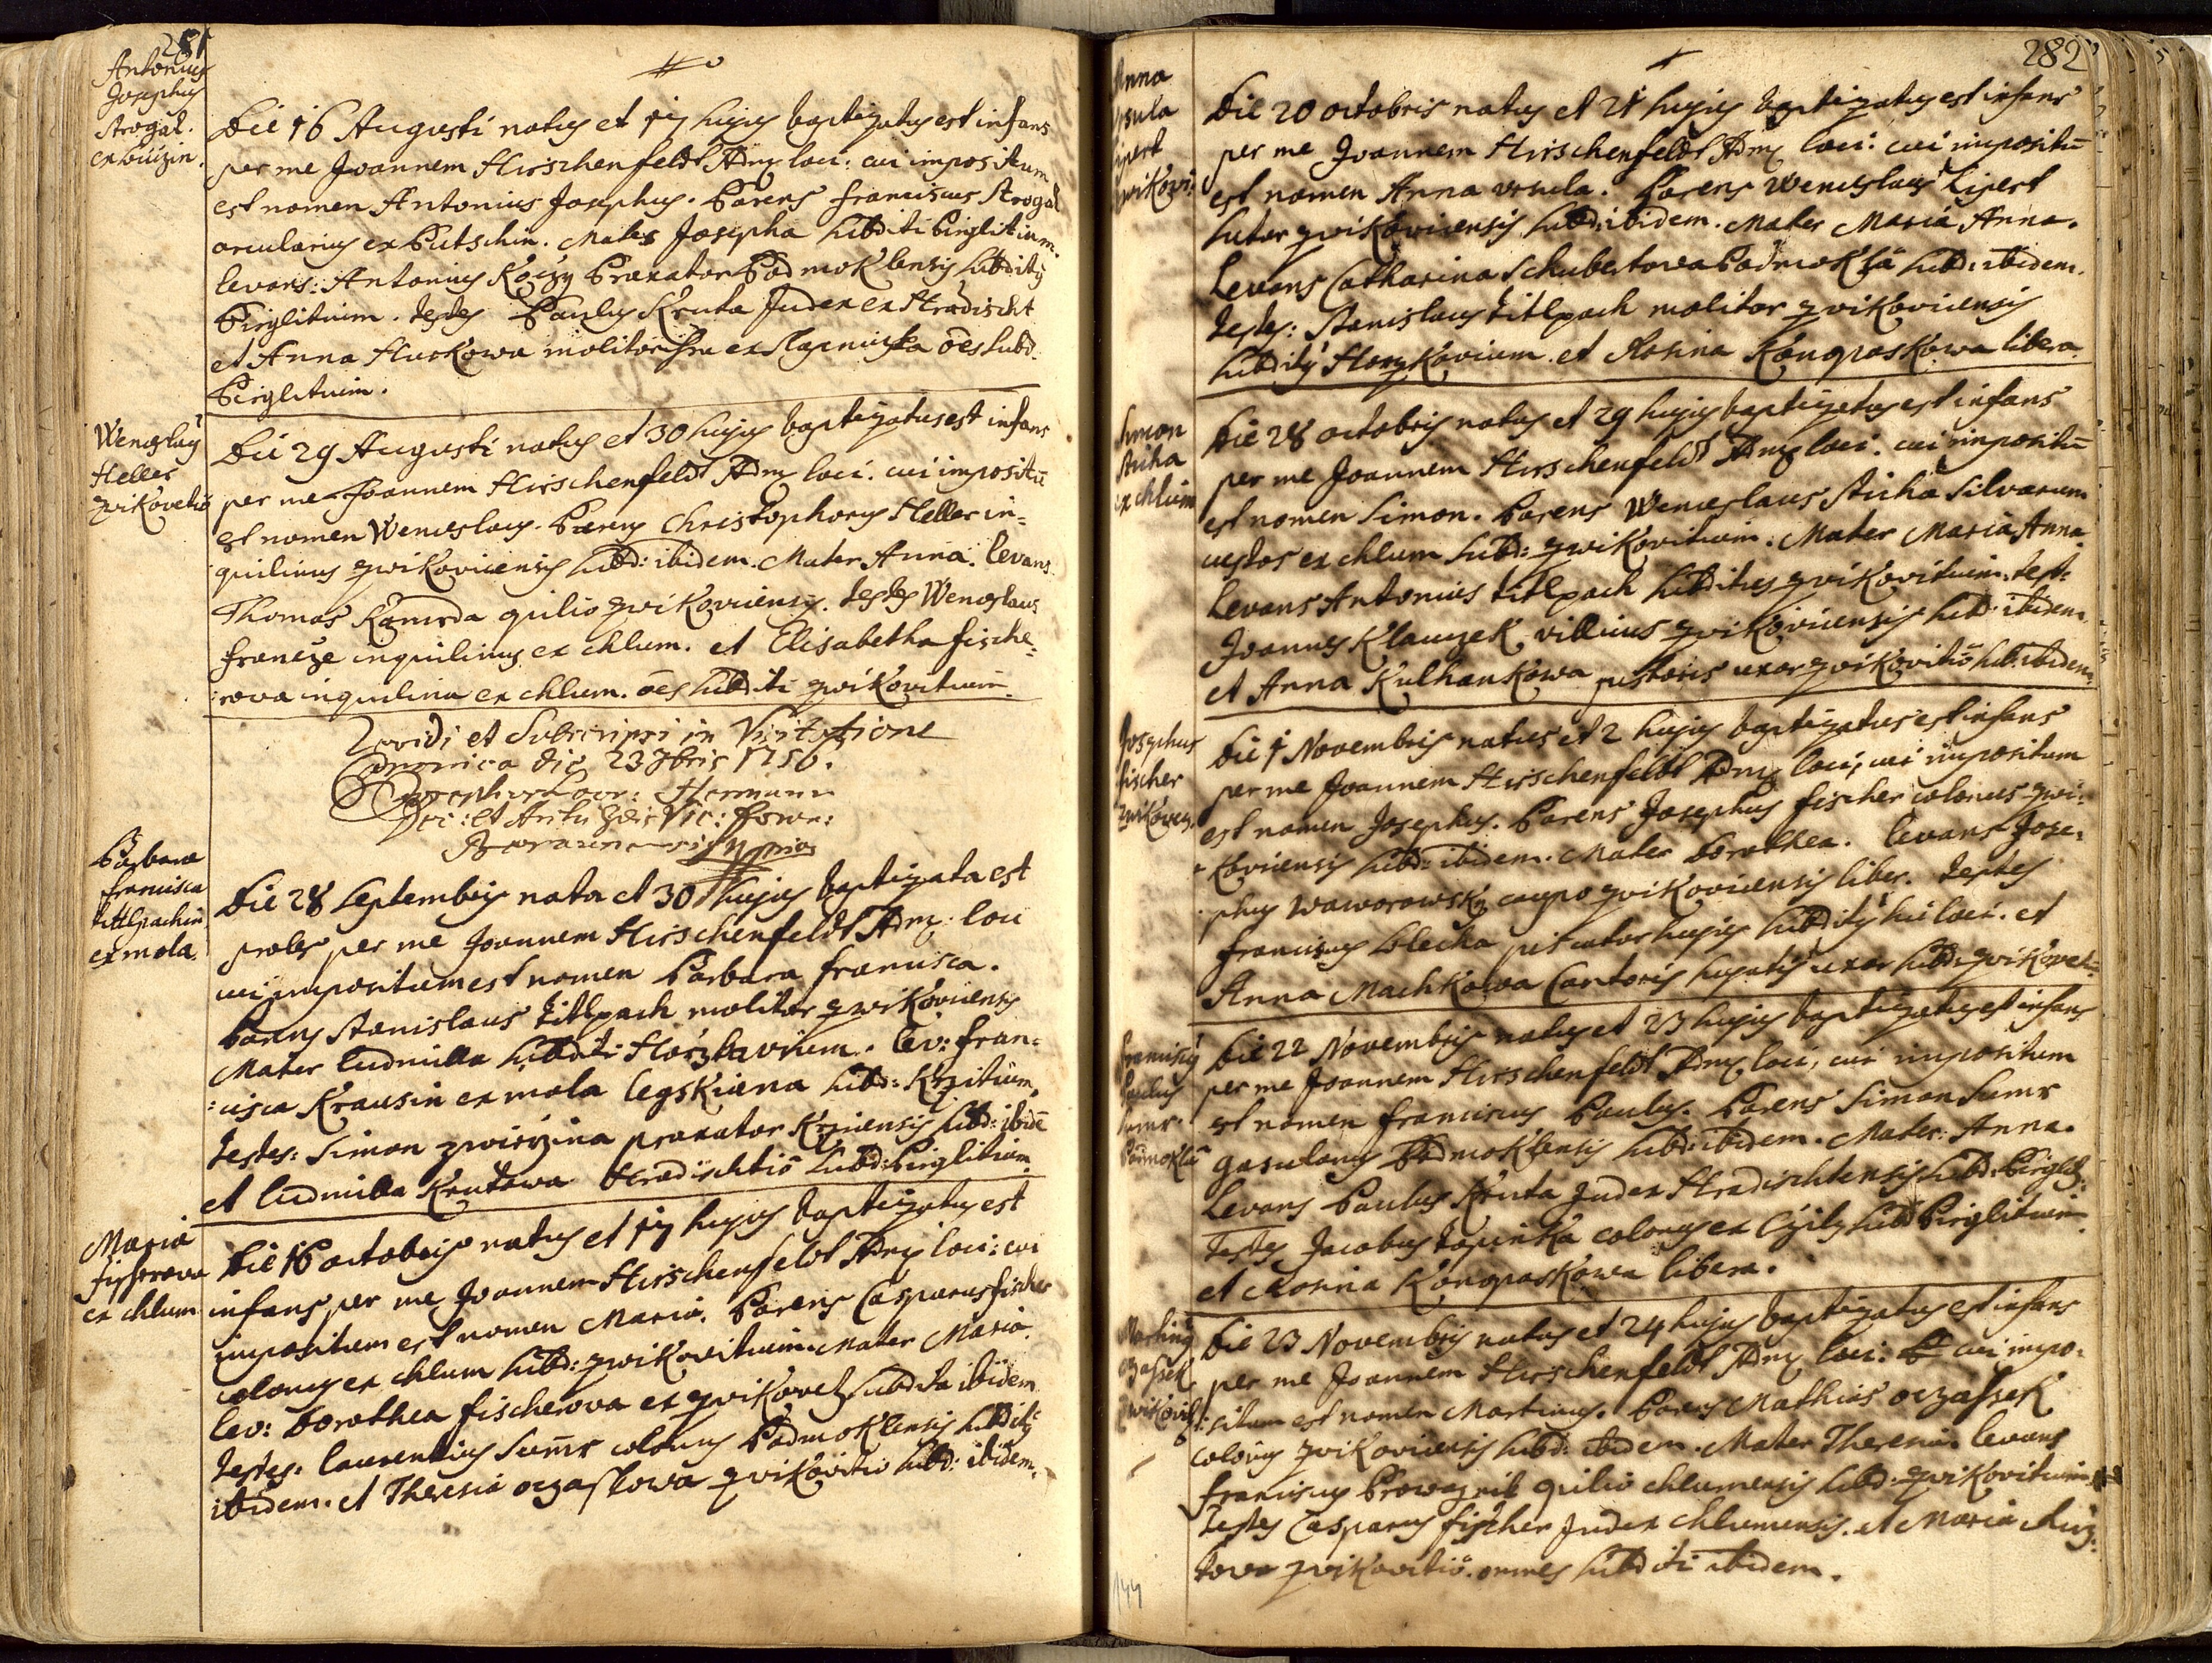 281
Antonius
Josephus
Strogal.
ex Buczin.
Die 16 Augusti natus et 17 hujus baptizatus est infans
per me Joannem Hirschenfeldt Adm: loci: cui impositum
est nomen Antonius Josephus. Parens Franciscus Strogal
arcularius ex Butschin. Mater Josepha subditi Pirglitium.
Levans: Antonius Koczy Braxator Podmoklensis subditus
Pirglitium. Testes Paulus Kruta Judex ex Hradischt
et Anna Huskowa molitorissa ex Slapnicka oēs subd.
Pirglitium.
Wenceslaus
Heller
Zwikovetii
Die 29 Augusti natus et 30 hujus baptizatus est infans
per me Joannem Hirschenfeldt Adm: loci. cui impositū
est nomen Wenceslaus. Parens Christophorus Heller in-
quilinus Zwikoviensis subd: ibidem. Mater Anna. Levans
Thomas opilio Zwikoviensis. Testes Wenceslaus
Francze inquilinus ex Chlum. et Elisabetha Fische-
:rova inquilina ex Chlum. oēs subditi Zwikovitium.
vidi et Subscripsi in Visitatione
Canonica die 23 7bris 1756.
Josephus Hermann
Vic: For:
Barbara
Francisca
Tittlpachin
ex mola.
Die 28 Septembris nata et 30 hujus baptizata est
proles per me Joannem Hirschenfeldt Adm: loci
cui impositum est nomen Barbara Francisca.
Parens Stanislaus Titlpach molitor Zwikoviensis
Mater Ludmilla subditi Horzkovium. Lev: Fran-
:cisca Krausin ex mola Legskiana subd: Krzitium.
Testes: Simon Zwierzina praxator Krziensis subd: ibidē
et Ludmilla Krutowa Hradischtiō subd: Pirglitium.
Maria
Fisserova
ex Chlum
Die 16 octobris natus et 17 hujus baptizatus est
infans per me Joannem Hirschenfeldt Adm: loci: cui
impositum est nomen Maria. Parens Casparus Fischer
colonus ex Chlum subd: Zwikovitium. Mater Maria.
Lev: Dorothea Fischerova ex Zwikovetz subdita ibidem
Testes. Laurentius Sumr colonus Podmoklensis subditus
ibidem. et Theresia oczasskowa Zwikovitiō subd: ibidem.
282
Anna
Ursula
Lipert
Zwikovi:
Die 20 octobris natus et 21 hujus baptizatus est infans
per me Joannem Hirschenfeldt Adm: loci: cui impositū
est nomen Anna Ursula. Parens Wenceslaus Lipert
sutor Zwikoviensis subd: ibidem. Mater Maria Anna.
Levans Catharina Schubertowa Podmoklā subd: ibidem.
Testes: Stanislaus Titlpach molitor Zwikoviensis
subditus Horzkovium. et Rosina Konopaskowa libera.
Simon
Sticha
ex Chlum
Die 28 octobris natus et 29 hujus baptizatus est infans
per me Joannem Hirschenfeldt Adm: loci: cui impositū
est nomen Simon. Parens Wenceslaus Sticha Silvarum
custos ex Chlum subd: Zwikovitium. Mater Maria Anna
Levans Antonius Titlpach subditus Zwikovitium. Test:
Joannes Klauczek villicus Zwikoviensis subd: ibidem.
et Anna Kulhankowa pistoris uxor Zwikovitiō sub: ibidem.
Josephus
Fischer
Zwikovez.
Die 1 Novembris natus et 2 hujus baptizatus est infans
per me Joannem Hirschenfeldt Adm: loci; cui impositum
est nomen Josephus. Parens Josephus Fischer colonus Zwi-
koviensis subd: ibidem. Mater Dorothea. Levans Jose-
phus Waworowsky caupo Zwikoviensis liber. Testes
Franciscus Blecha piscator hujus subditus hui loci. et
Anna Machkowa Cantoris hujatis uxor subd: Zwikovet:
Franciscus
Paulus
Sumr.
Podmoklā
Die 22 Novembris natus et 23 hujus baptizatus est infans
per me Joannem Hirschenfeldt Adm: loci, cui impositum
est nomen Franciscus Paulus. Parens Simon Sumr
gasulanus Podmoklensis subd: ibidem. Mater: Anna.
Levans Paulus Kruta Judex Hradischtensis subd: Pirglit:
Testes Jacobus Tapinka colonus ex Czilz subd Pirglitium
et Rosina Konopaskowa libera.
Martinus
oczassek
Zwikovitz
Die 23 Novembris natus et 24 hujus baptizatus est infans
per me Joannem Hirschenfeldt Adm: loci: cui impo-
:situm est nomen Martinus. Parens Mathias oczassek
colonus Zwikoviensis subd: ibidem. Mater Theresia. Levans
Franciscus Prowaznik opilio Chlumensis subd: Zwikovitium.
Testes Casparus Fischer Judex Chlumensis. et Maria
towa Zwikovitiō. omnes subditi ibidem.
144